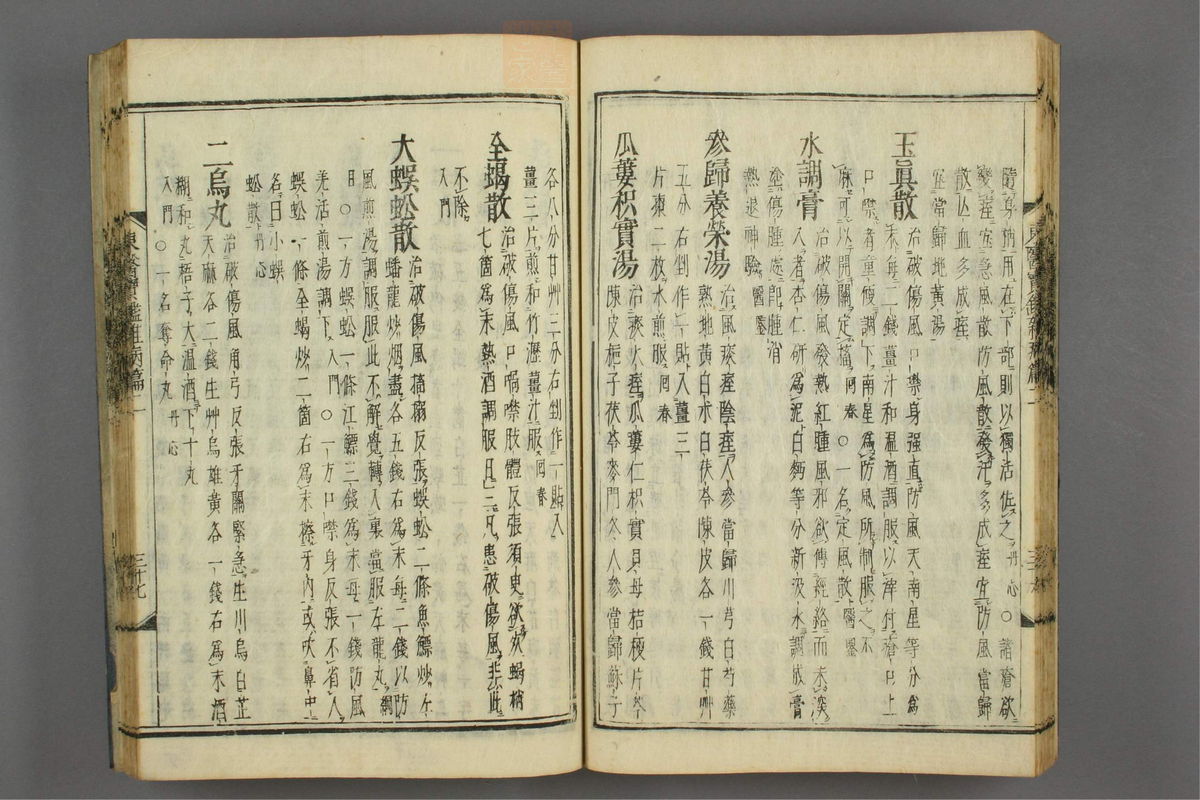 隨身枘用在下部則以獨活佐之丹心○諸瘡欲
變痓宜急風散防風散發汗多成痓宜防風當歸
散亾血多成痓
宜當歸地黃湯
玉眞散 治破傷風口噤身强直防風天南星等分爲
末每二錢薑汁和溫酒調服以滓付瘡口上
口噤者童便調下南星爲防風所制服之不
麻可以開關定搐回春○一名定風散醫鑒
水調膏 治破傷風發熱紅腫風邪欲傳經絡而未深
入者杏仁硏爲泥白麪等分新汲水調成膏
塗傷腫處卽腫消
熱退神驗醫鑒
參歸養榮湯 治風痰痓陰痓人參當歸川芎白芍藥
熟地黃白朮白茯苓陳皮各一錢甘艸
五分右剉作一貼入薑三
片棗二枚水煎服回春
瓜蔞枳實湯 治痰火痓瓜蔞仁枳實貝母桔梗片芩
陳皮梔子茯苓麥門冬人參當歸蘇子
各八分甘艸三分右剉作一貼入
薑三片煎和竹瀝薑汁服回春
全蝎散 治破傷風口喎噤肢體反張須臾欲死蝎梢
七箇爲末熱酒調服日三凡患破傷風非此
不除
入門
大蜈蚣散 治破傷風搐搦反張蜈蚣二條魚鰾炒左
蟠龍炒烟盡各五錢右爲末每二錢以防
風煎湯調服服此不解覺轉入裏當服左龍丸綱
目○一方蜈蚣一條江鰾三錢爲末每一錢防風
羌活煎湯調下入門○一方口噤身反張不省人
蜈蚣一條全蝎炒二箇右爲末擦牙內或吹鼻中
名曰小蜈
蚣散丹心
二烏丸 治破傷風角弓反張牙關緊急生川烏白芷
天麻各二錢生艸烏雄黃各一錢右爲末酒
糊和丸梧子大温酒下十丸
入門○一名奪命丸丹心
東醫寶鑑雜病篇二
三十七